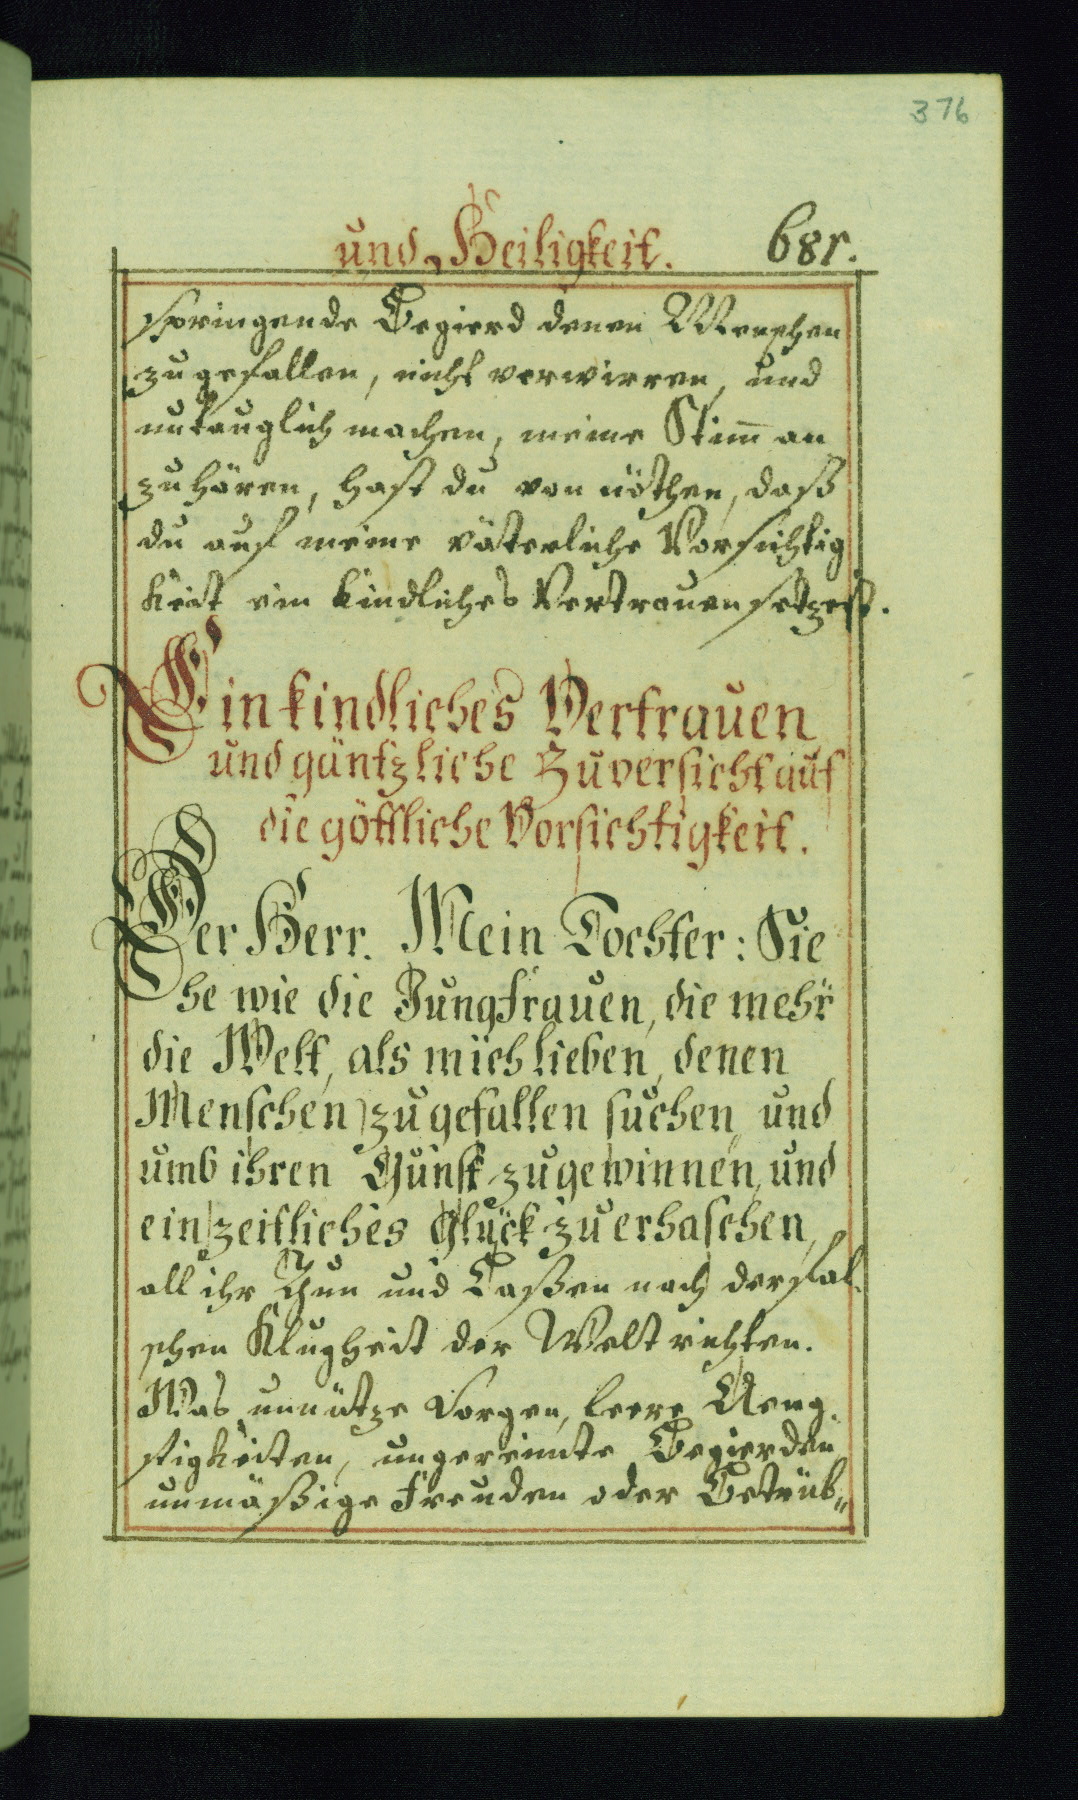 376
und Heiligkeit. 681.
springende Begierd denen Menschen
zugefallen, nicht verwirren, und
untauglich machen, meine Stim̄ an
zuhören, hast du von nöthen, daß
du auf meine väterliche Vorsichtig
keit ein kindliches Vertrauen setzest.
Ein kindliches Vertrauen
und gäntzliche Zuversicht auf
die göttliche Vorsichtigkeit.
Der Herr. Mein Tochter: Sie
he wie die Jungfrauen, die mehr
die Welt, als mich lieben, denen
Menschen zugefallen suchen, und
umb ihren Gunst zugewinnen, und
ein zeitliches Glück zuerhaschen,
all ihr Thun und Laßen nach der fal-
schen Klugheit der Welt richten.
Was unnütze Sorgen, leere Aeng-
stigkeiten, ungereimte Begierden,
unmäßige Freuden oder Betrüb„